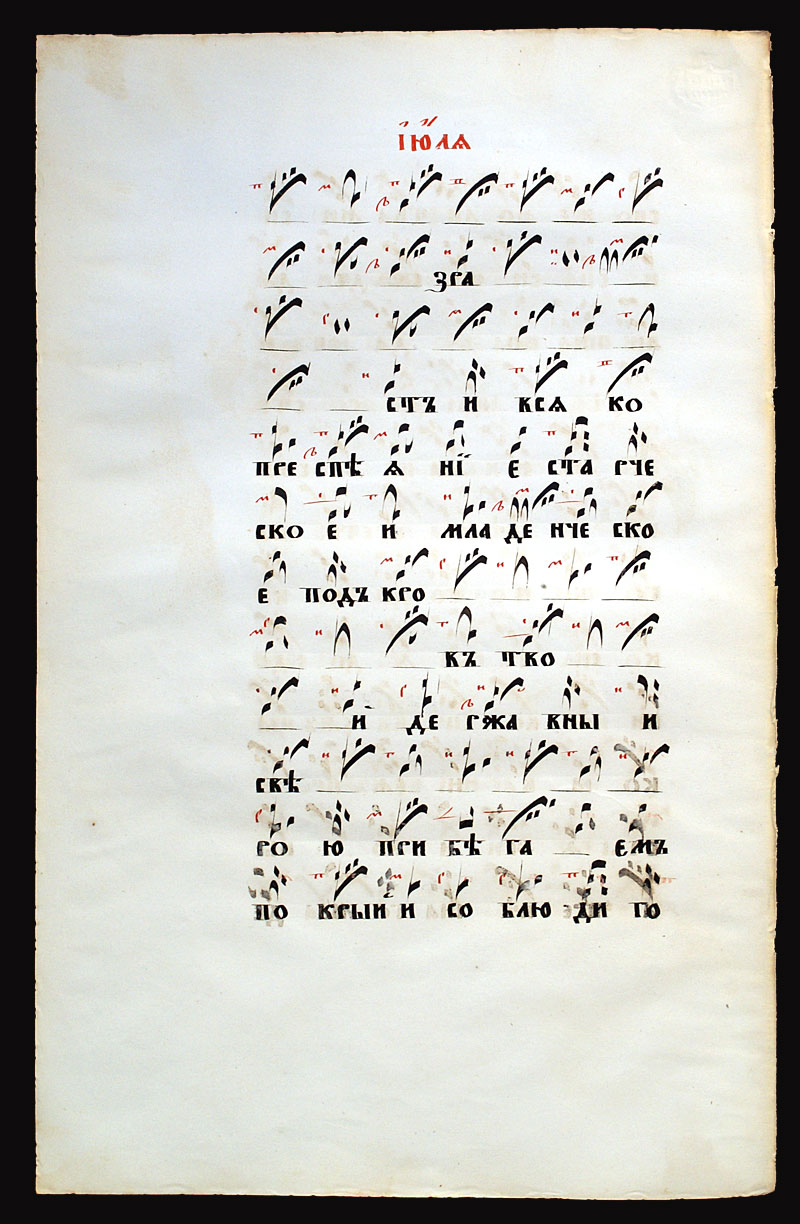 и҃ і҆ю́лѧ
зра
стъ и всѧ ко
пре спѣ ѧ нї е ста рче
ско е и мла де нче ско
е подъ кро
въ тво
и де ржа вны и
свѣ
ро ю при бѣ га емъ
по крыи и со блю ди го